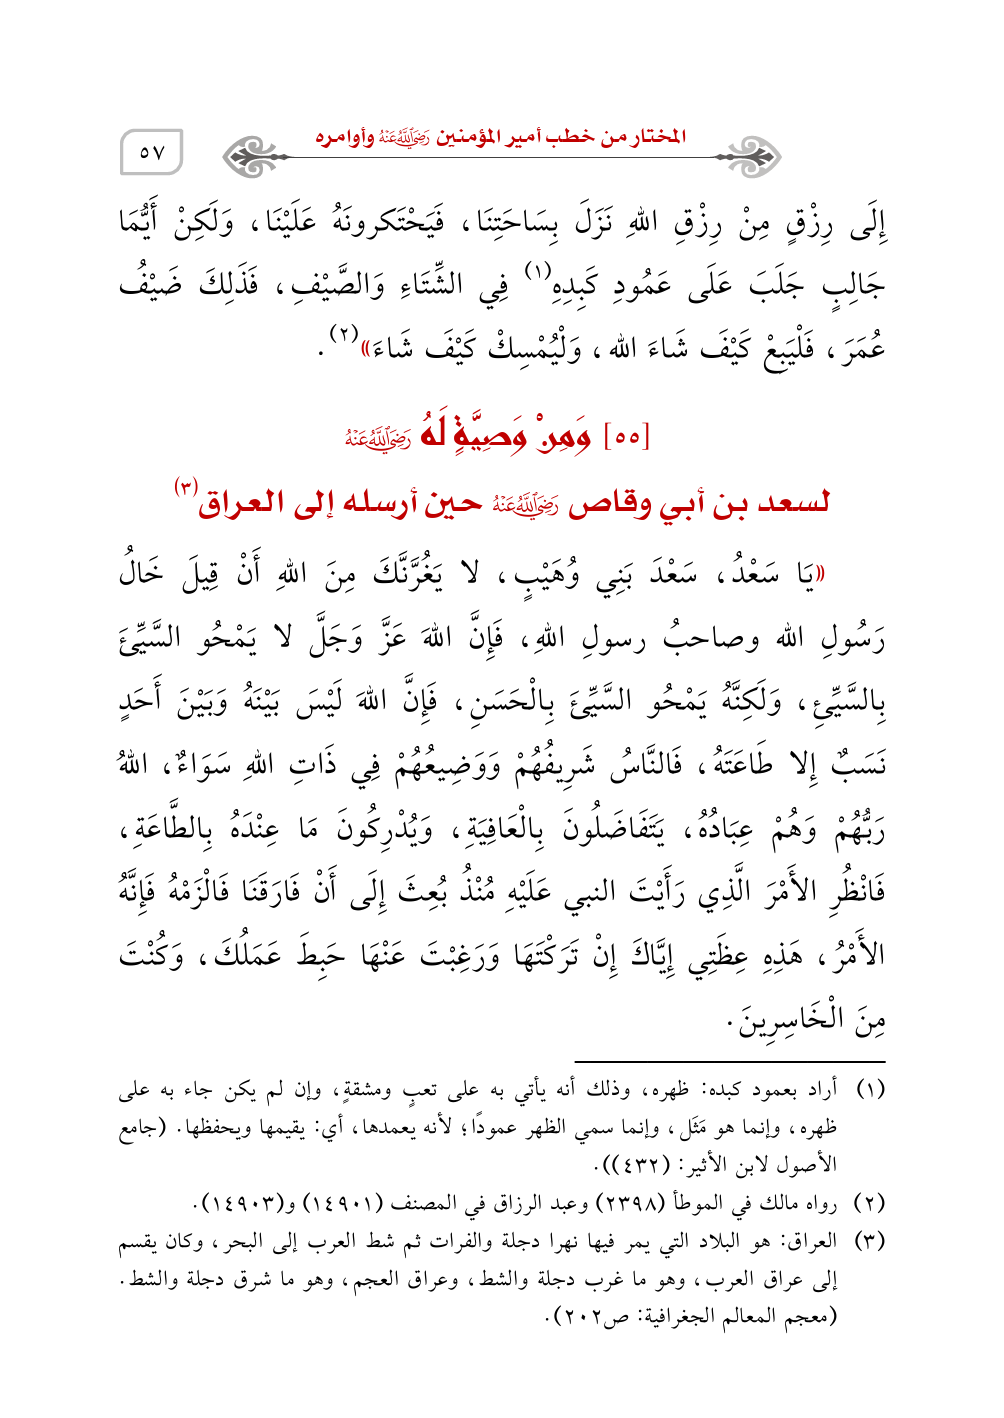 المختار من خطب أمير المؤمنين رَضِيَ اللَّهُ عَنْهُ وأوامره
٥٧
إِلَى رِزْقٍ مِنْ رِزْقِ اللهِ نَزَلَ بِسَاحَتِنَا، فَيَحْتَكرونَهُ عَلَيْنَا، وَلَكِنْ أَيُّمَا
جَالِبٍ جَلَبَ عَلَى عَمُودِ كَبِدِهِ(١) فِي الشِّتَاءِ وَالصَّيْفِ، فَذَلِكَ ضَيْفُ
عُمَرَ، فَلْيَبِعْ كَيْفَ شَاءَ الله، وَلْيُمْسِكْ كَيْفَ شَاءَ»(٢).
[٥٥] وَمِنْ وَصِيَّةٍ لَهُ رَضِيَ اللَّهُ عَنْهُ
لسعد بن أبي وقاص رَضِيَ اللَّهُ عَنْهُ حين أرسله إلى العراق(٣)
«يَا سَعْدُ، سَعْدَ بَنِي وُهَيْبٍ، لا يَغُرَّنَّكَ مِنَ اللهِ أَنْ قِيلَ خَالُ
رَسُولِ الله وصاحبُ رسولِ اللهِ، فَإِنَّ اللهَ عَزَّ وَجَلَّ لا يَمْحُو السَّيِّئَ
بِالسَّيِّئِ، وَلَكِنَّهُ يَمْحُو السَّيِّئَ بِالْحَسَنِ، فَإِنَّ اللهَ لَيْسَ بَيْنَهُ وَبَيْنَ أَحَدٍ
نَسَبٌ إِلا طَاعَتَهُ، فَالنَّاسُ شَرِيفُهُمْ وَوَضِيعُهُمْ فِي ذَاتِ اللهِ سَوَاءٌ، اللهُ
رَبُّهُمْ وَهُمْ عِبَادُهُ، يَتَفَاضَلُونَ بِالْعَافِيَةِ، وَيُدْرِكُونَ مَا عِنْدَهُ بِالطَّاعَةِ،
فَانْظُرِ الأَمْرَ الَّذِي رَأَيْتَ النبي عَلَيْهِ مُنْذُ بُعِثَ إِلَى أَنْ فَارَقَنَا فَالْزَمْهُ فَإِنَّهُ
الأَمْرُ، هَذِهِ عِظَتِي إِيَّاكَ إِنْ تَرَكْتَهَا وَرَغِبْتَ عَنْهَا حَبِطَ عَمَلُكَ، وَكُنْتَ
مِنَ الْخَاسِرِينَ.
(١) أراد بعمود كبده: ظهره، وذلك أنه يأتي به على تعبٍ ومشقةٍ، وإن لم يكن جاء به على
ظهره، وإنما هو مَثَل، وإنما سمي الظهر عمودًا؛ لأنه يعمدها، أي: يقيمها ويحفظها. (جامع
الأصول لابن الأثير: (٤٣٢)).
(٢) رواه مالك في الموطأ (٢٣٩٨) وعبد الرزاق في المصنف (١٤٩٠١) و(١٤٩٠٣).
(٣) العراق: هو البلاد التي يمر فيها نهرا دجلة والفرات ثم شط العرب إلى البحر، وكان يقسم
إلى عراق العرب، وهو ما غرب دجلة والشط، وعراق العجم، وهو ما شرق دجلة والشط.
(معجم المعالم الجغرافية: ص٢٠٢).